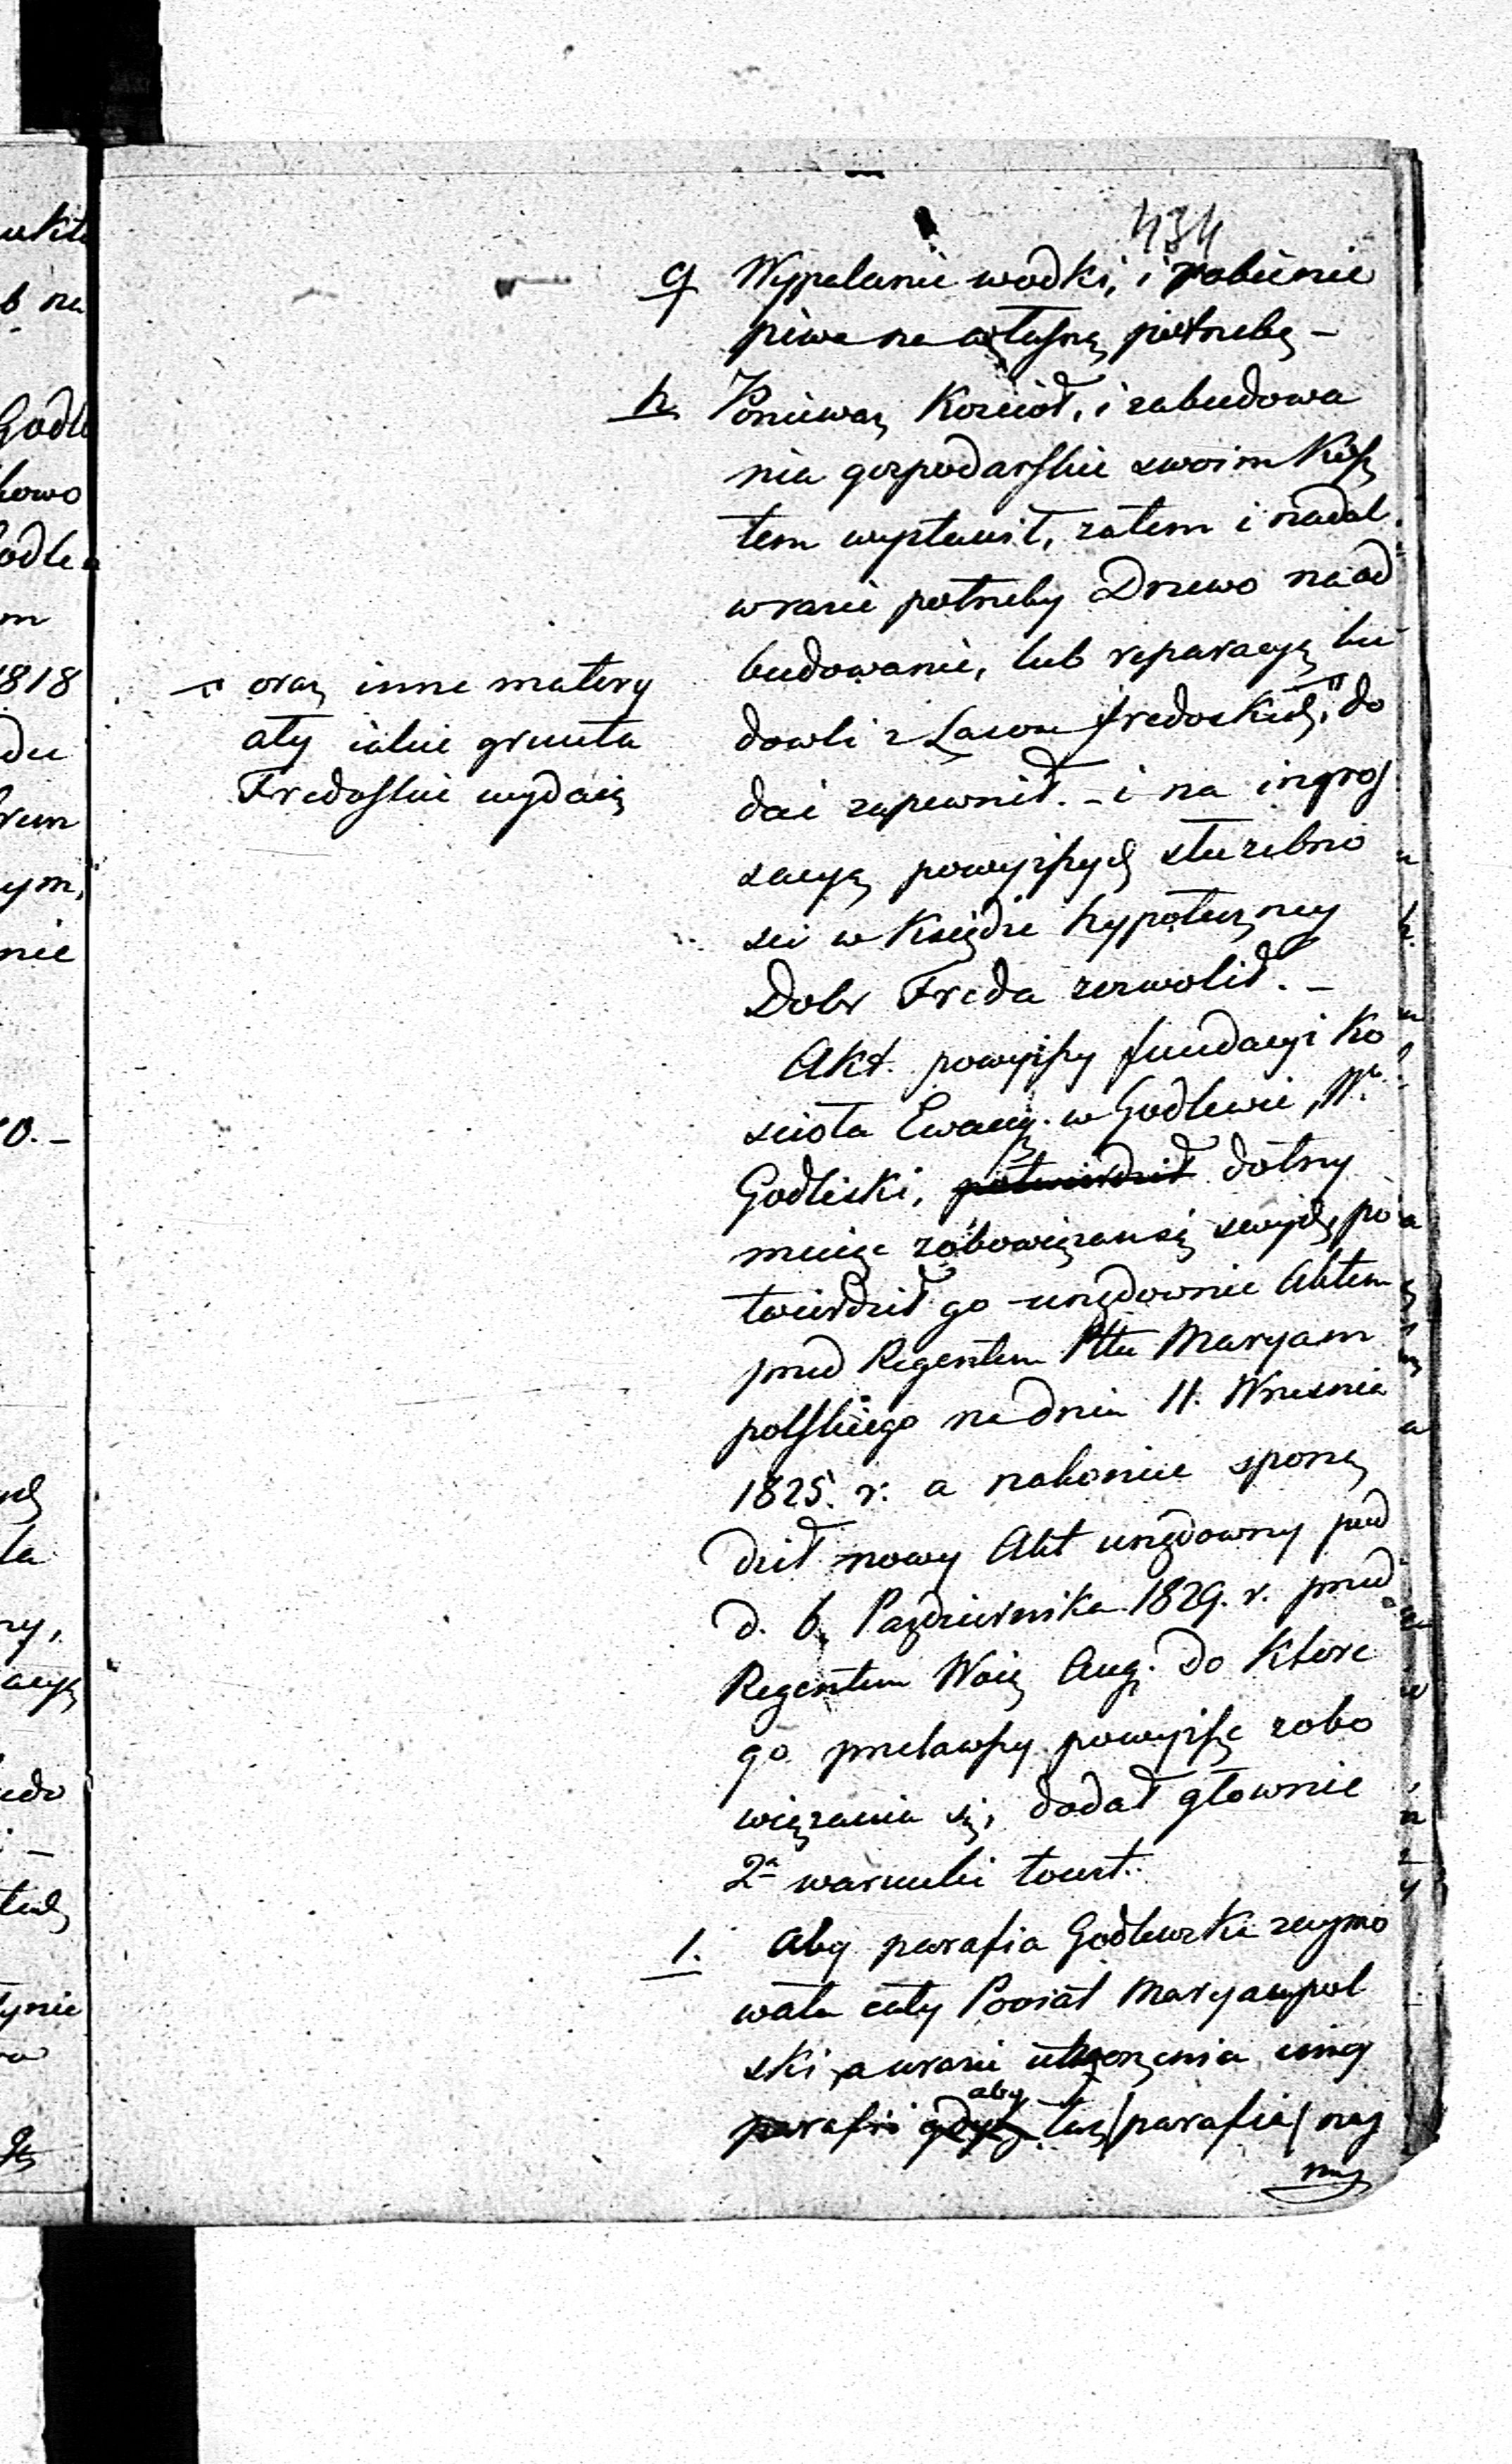 434
g Wypalanie wodki, i robienie
piwa na własną potrzebę –
h Ponieważ Kościoł, i zabudowa
nia gospodarskie swoim Kosz
tem wystawił, zatem i nadal
w razie potrzeby Drzewo na od
budowanie, lub reparacyą bu
dowli z Lasow fredoskich, do
dai zapewnił. – i na ingros
sacyą powyższych służebno
sci w Księdze hypoteczney
Dobr Freda zezwolił. –
oraz inne matery
ały iakie grunta
Fredoskie wydaią
Akt powyższy fundacyi Ko
scioła Ewang. w Godlewie, W.
Godleski, potwierdził dotrzy
muiąc zobowiązań się swych, po
twierdził go urzędownie Aktem
przed Regentem Pttu Maryam
polskiego na dniu 11. Wrzesnia
1825. r. a nakoniec sporzą
dził nowy Akt urzędowny pod
d. 6. Października 1829. r. przed
Regentem Woie Aug. do ktore
go przelawszy powyższe zobo
wiązania się, dodał głownie
2a warunki to iest:
1. Aby parafia Godlewska zaymo
wała cały Powiat Maryampol
ski, a w razie utworzenia inney
aby
parafii gdyby taż /parafia/ nay